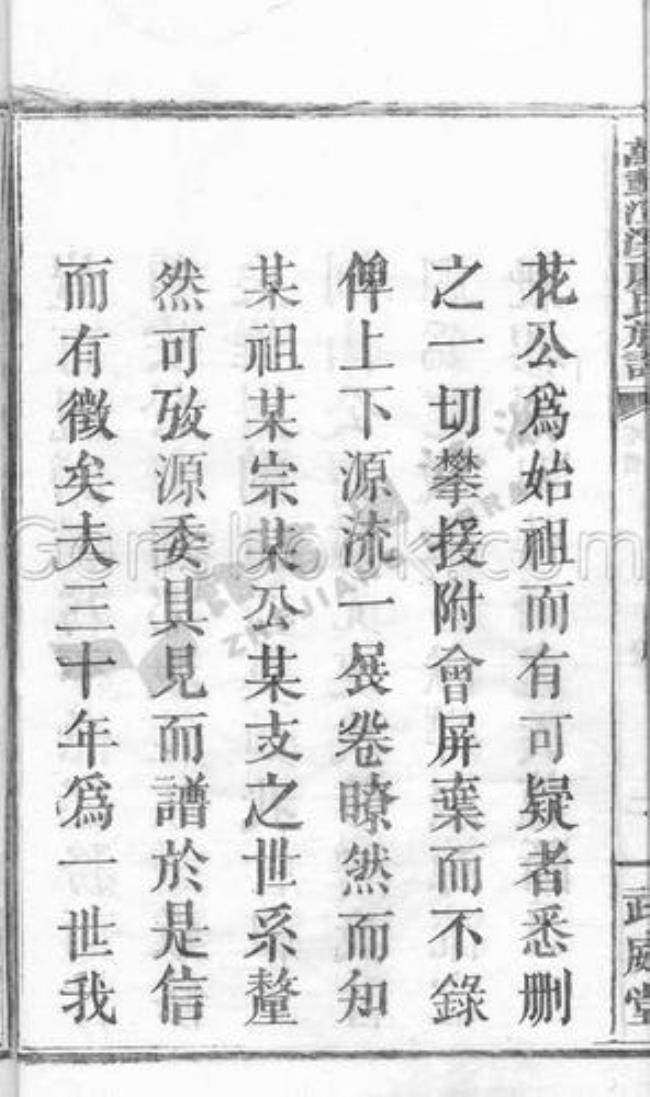 花公爲始祖而有可疑者悉刪
之一切攀援附會屏棄而不錄
俾上下源流一展卷瞭然而知
某祖某宗某公某支之世系釐
然可攷源委具見而譜於是信
而有徵矣夫三十年爲一世我